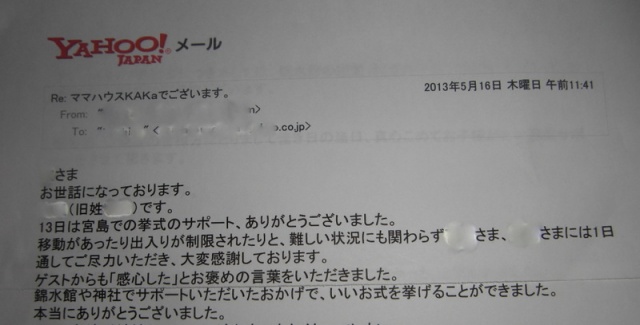 YAHOO! JAPAN メール
Re: ママハウスKAKaでございます。
2013年5月16日 木曜日 午前11:41
From: >
To: .co.jp>
さま
お世話になっております。
(旧姓 )です。
13日は宮島での挙式のサポート、ありがとうございました。
移動があったり出入りが制限されたりと、難しい状況にも関わらず さま、 さまには1日
通してご尽力いただき、大変感謝しております。
ゲストからも「感心した」とお褒めの言葉をいただきました。
錦水館や神社でサポートいただいたおかげで、いいお式を挙げることができました。
本当にありがとうございました。